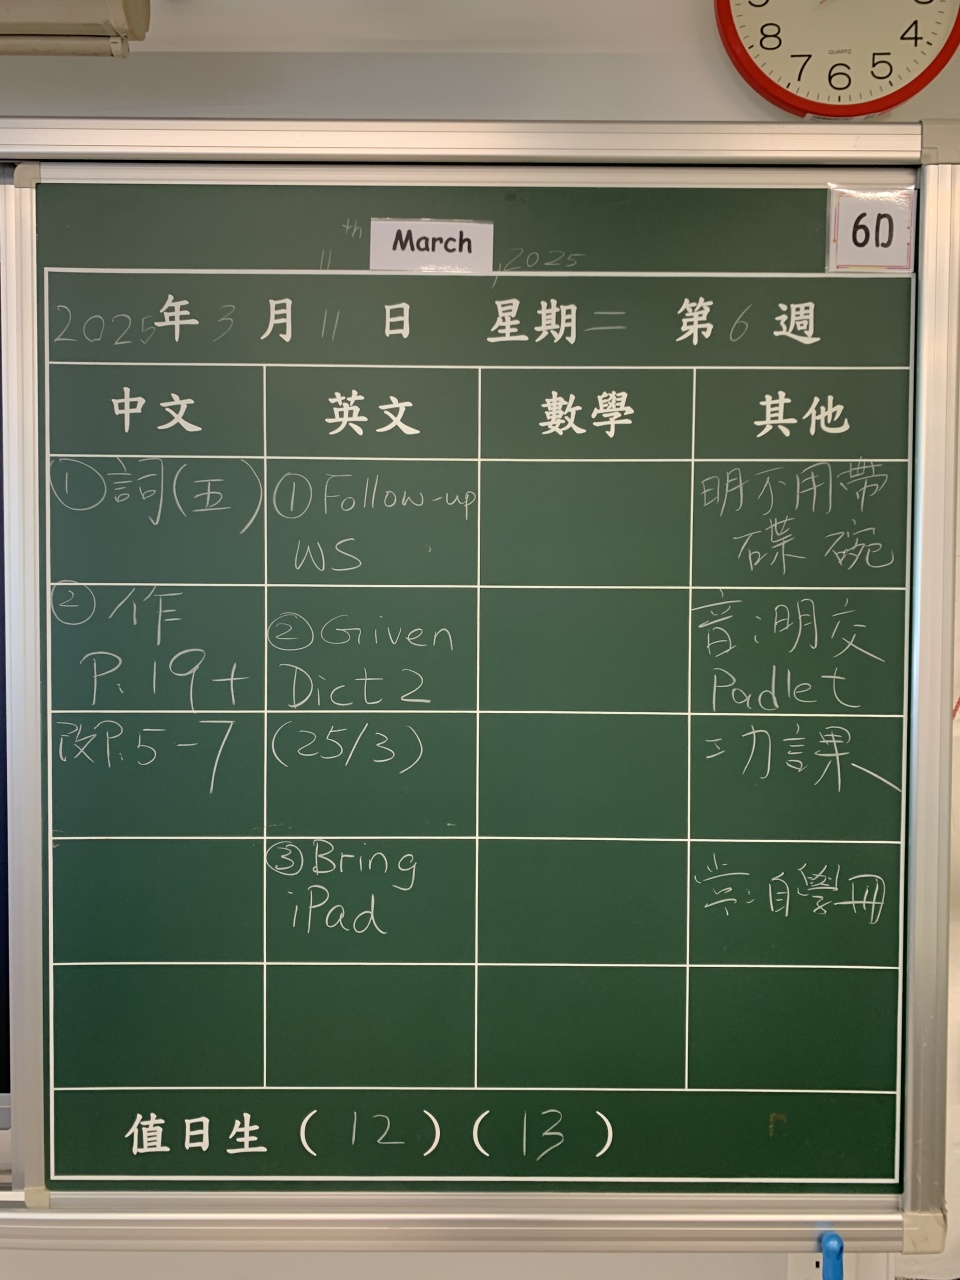 8 7 6 5 4
QUARTZ
6D
11th March, 2025
2025年3月11日 星期二 第6週
中文 英文 數學 其他
①詞(五)
②作
P.19+
改P.5-7
①Follow-up
WS
②Given
Dict 2
(25/3)
③Bring
iPad
明不用帶
碟 碗
音:明交
Padlet
功課
常:自學冊
值日生(12)(13)